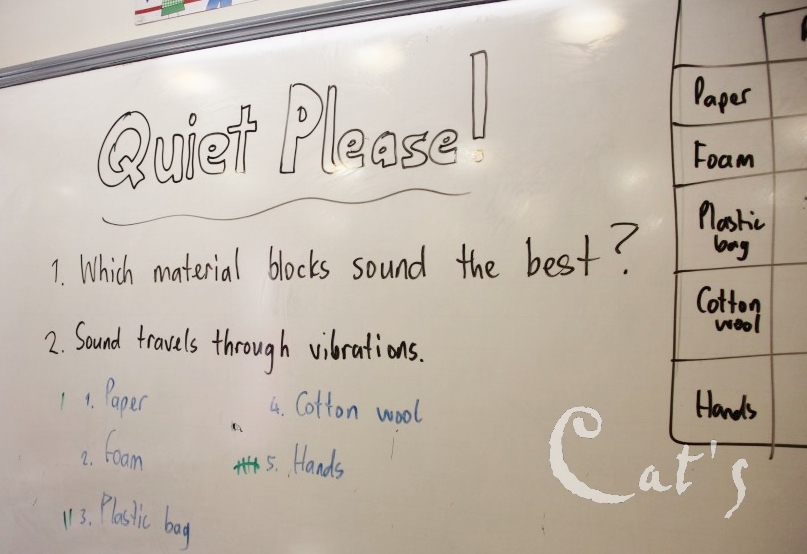 Quiet Please!
1. Which material blocks sound the best?
2. Sound travels through vibrations.
1. Paper
2. Foam
3. Plastic bag
4. Cotton wool
5. Hands
Paper
Foam
Plastic
bag
Cotton
wool
Hands
Cat's